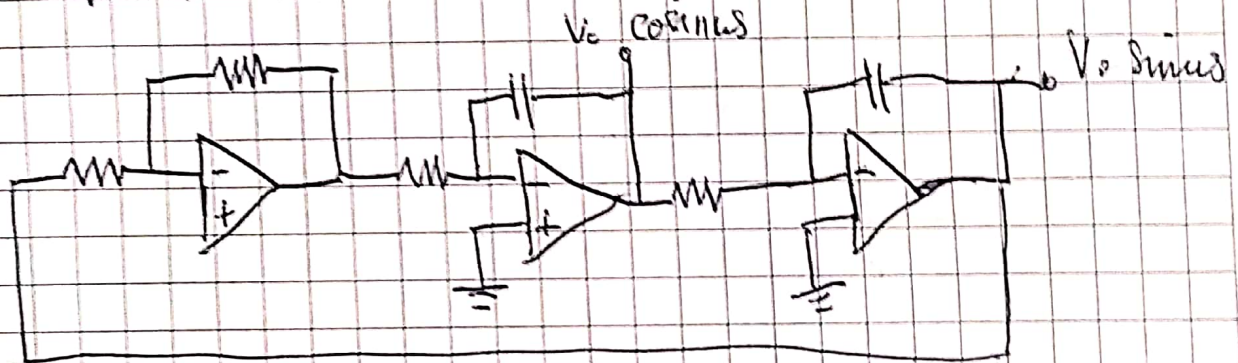 Vo cosinus
Vo sinus
-
+
-
+
-